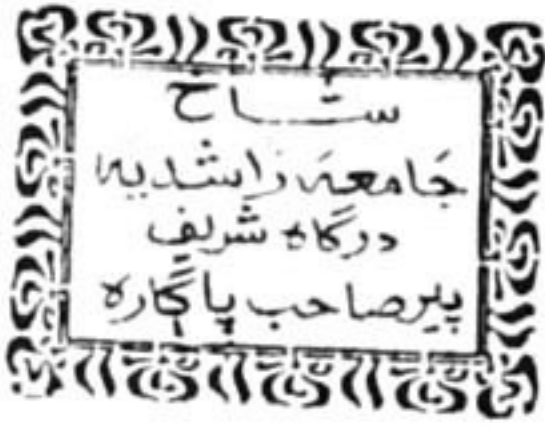 شاخ
جَامعہَ رَاشدیہ
درگاہ شریف
پیر صاحب پاڳارہ